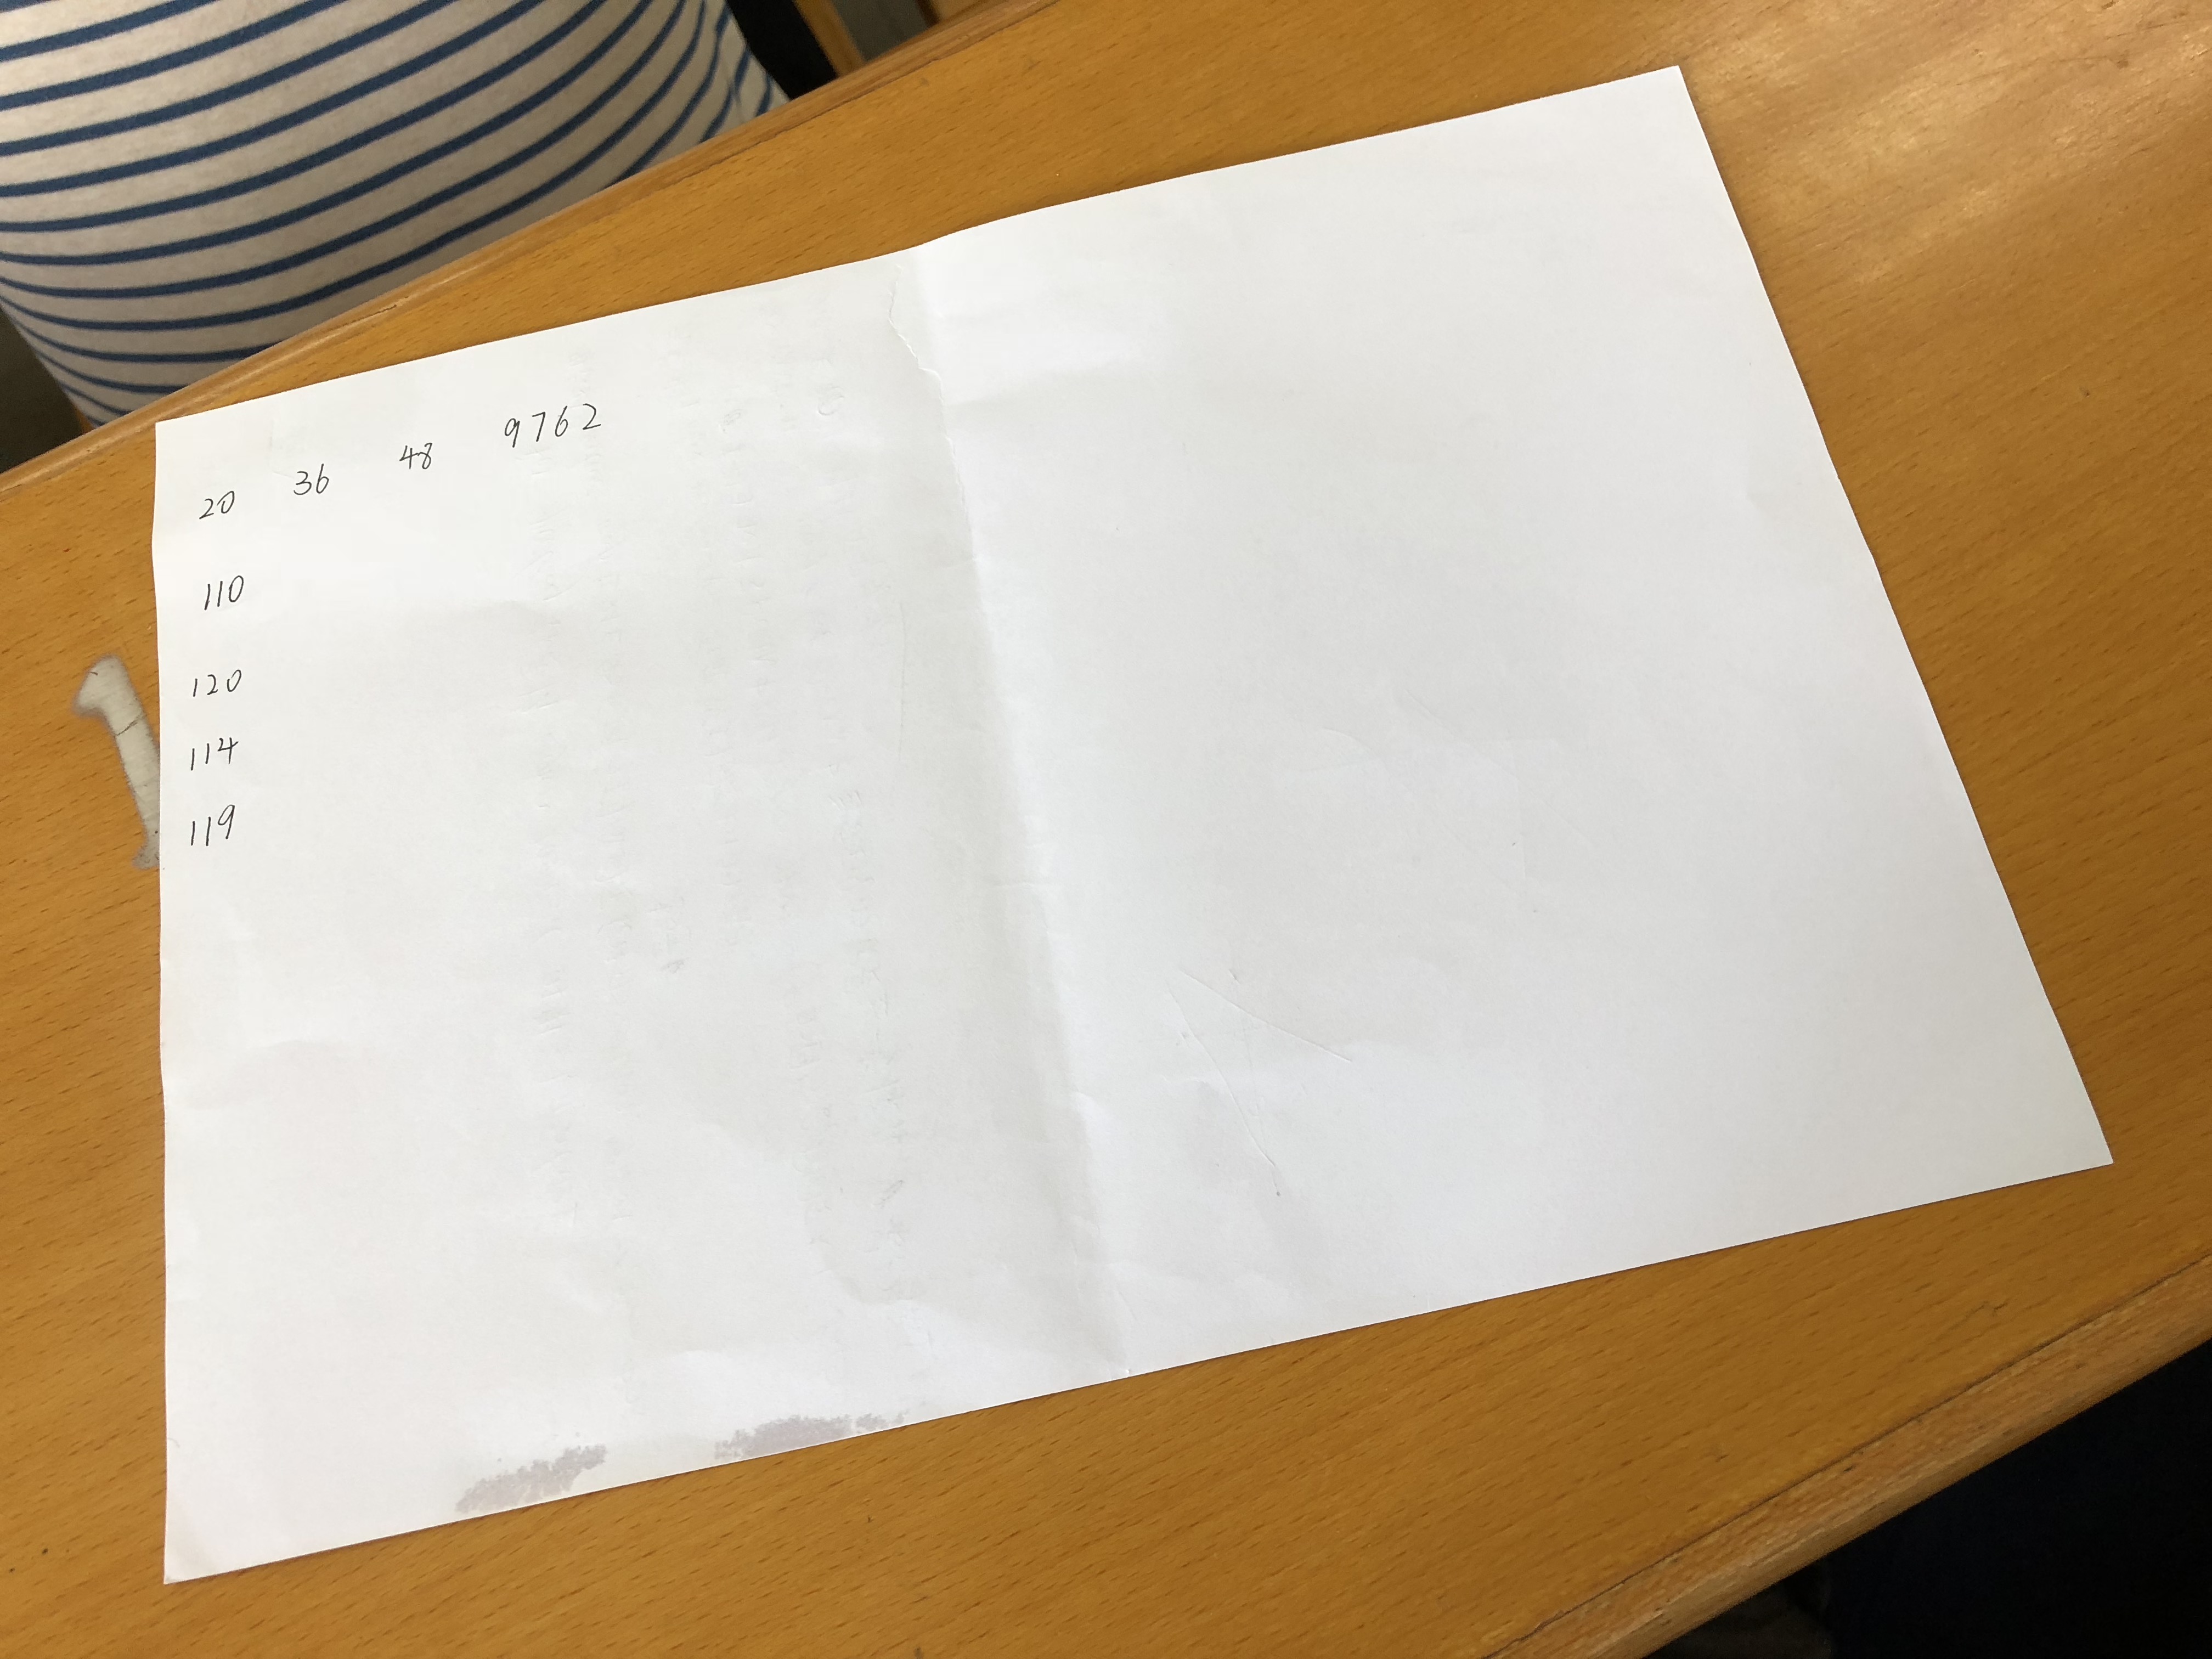 20 36 48 9762
110
120
114
119